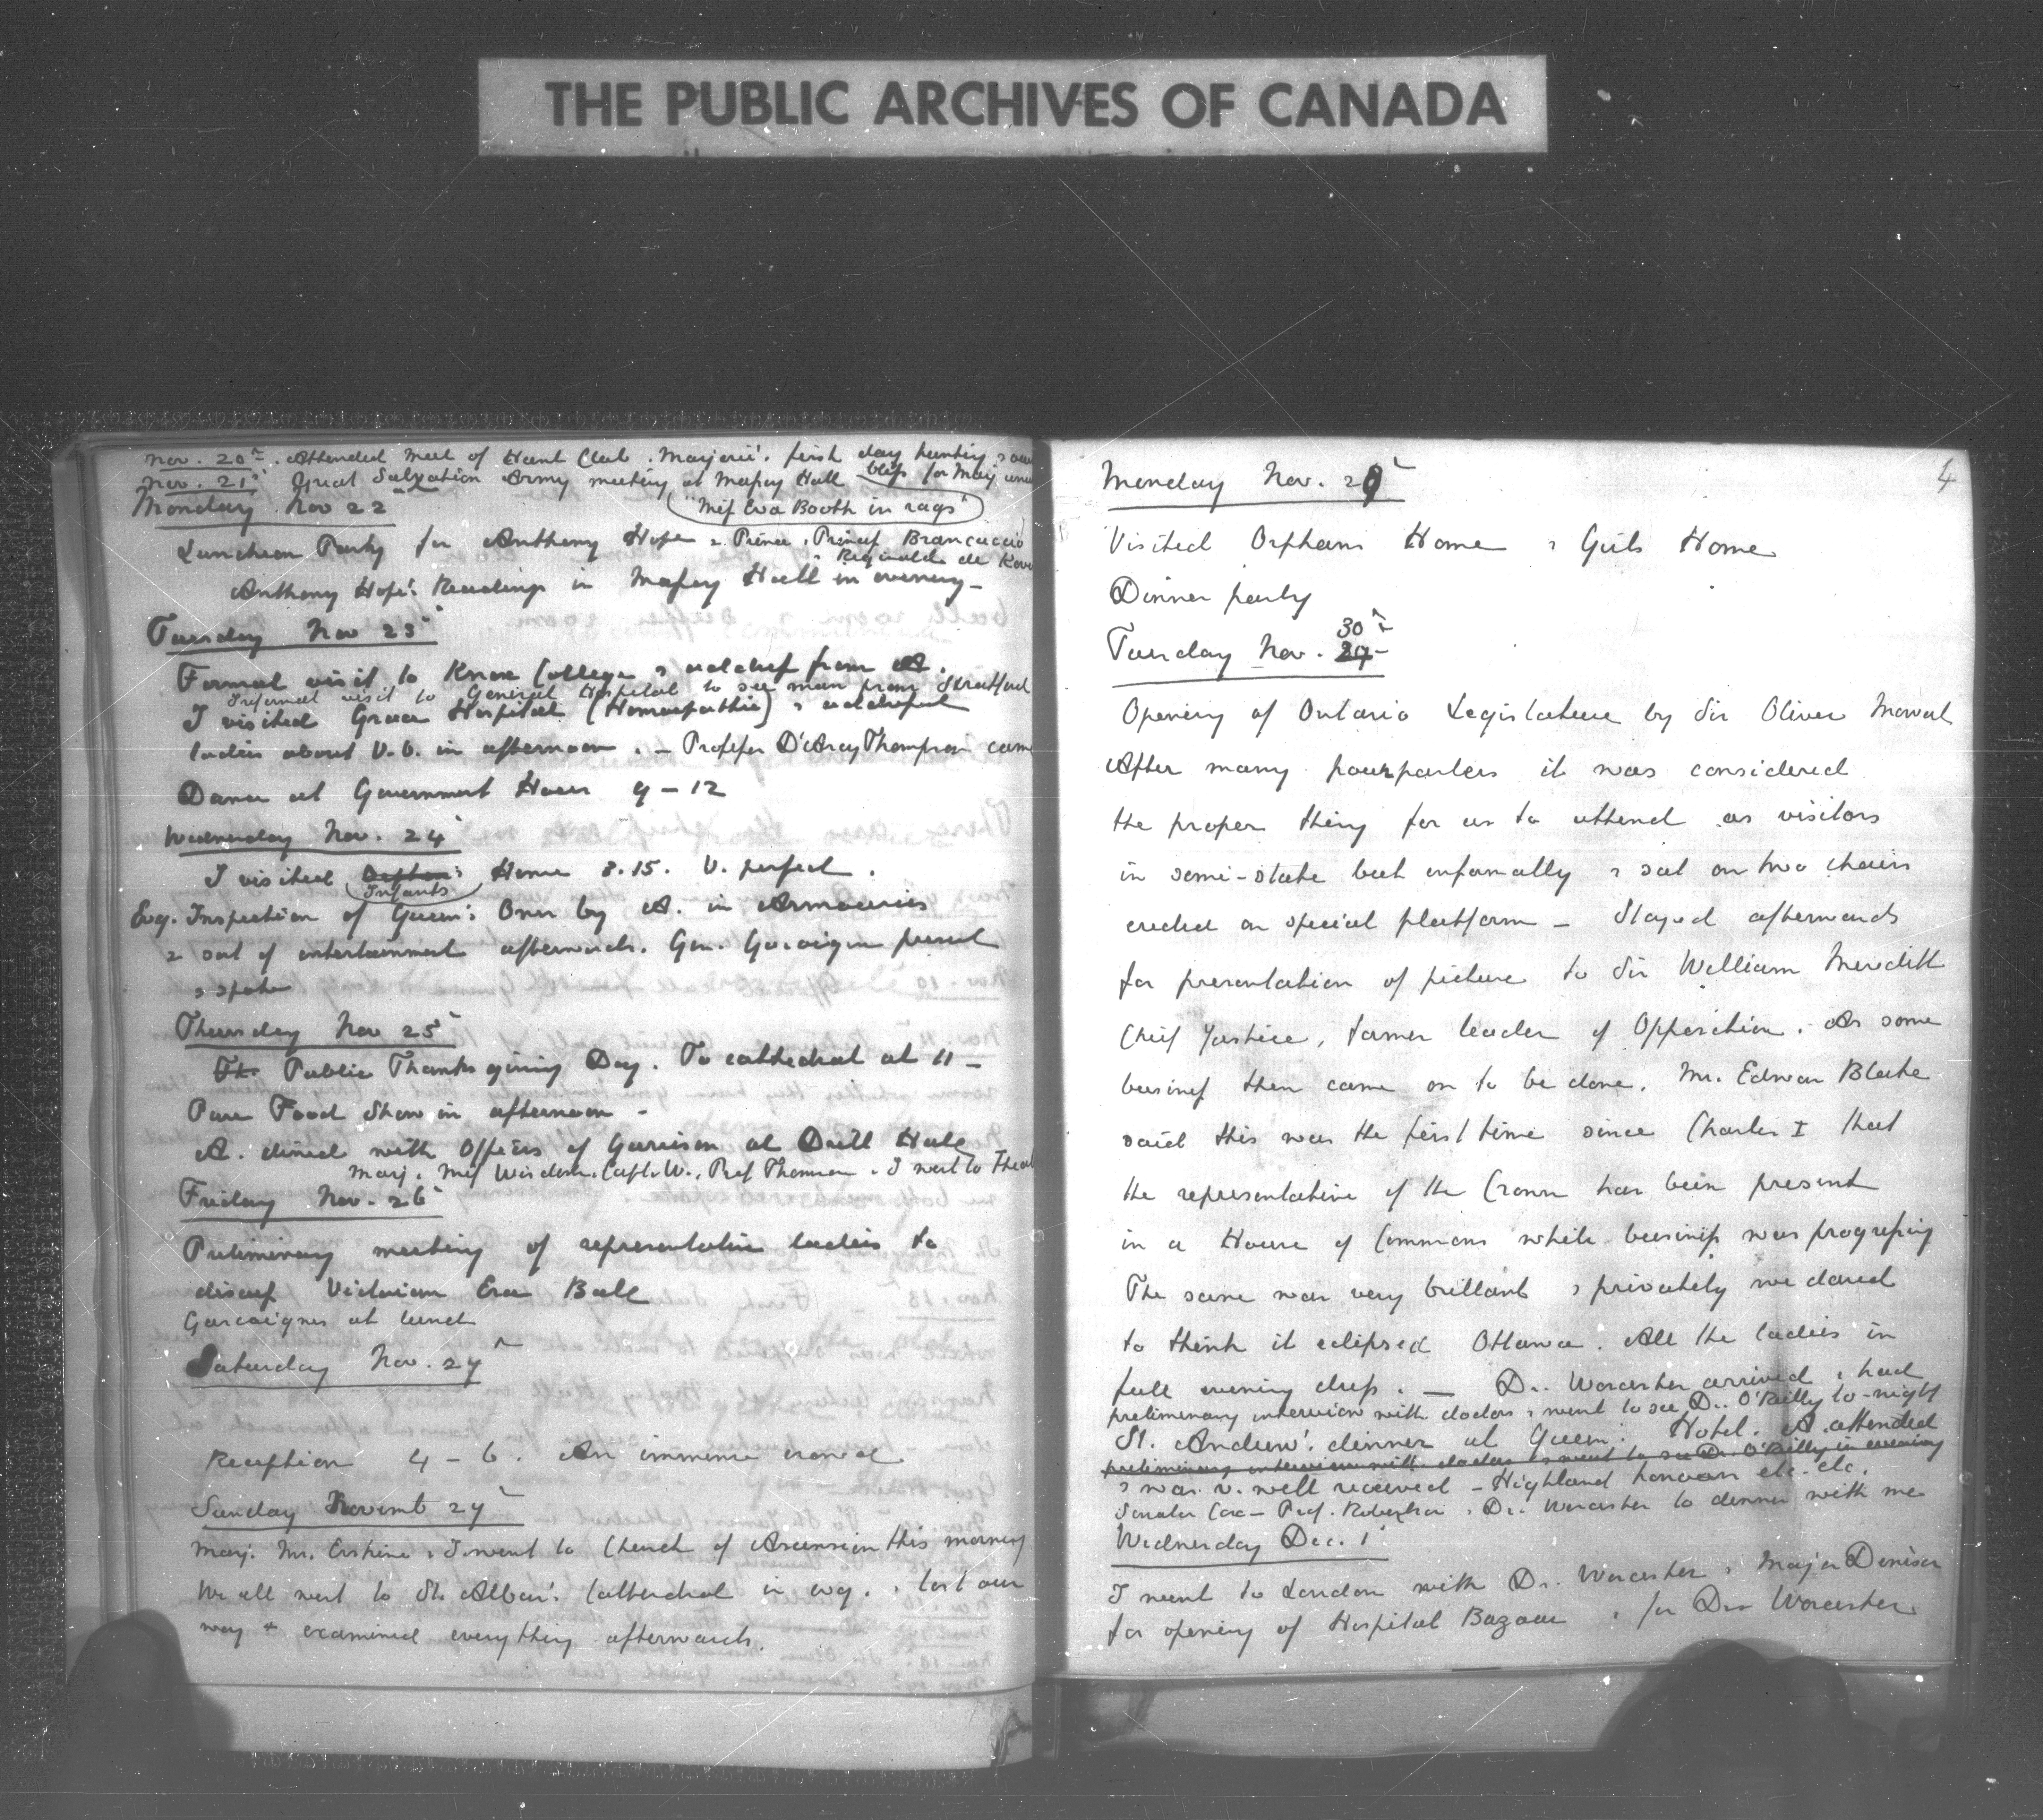 THE PUBLIC ARCHIVES OF CANADA
Nov. 20th. Attended meet of Hunt Club. Marjorie's first day hunting &
Nov. 21st Great Salvation Army meeting at Massey Hall bliss for Marj
Monday Nov 22
"Miss Eva Booth in rags"
Luncheon Party for Anthony Hope & Prince & Princess Brancaccio
& Reginald de Kov
Anthony Hope's Readings in Massey Hall in evening —
Tuesday Nov 23rd
Formal visit to Knox College & address from A.
Informal visit to General Hospital to see man from Stratford
I visited Grace Hospital (Homeopathic) & addressed
ladies about V.O. in afternoon. — Professor D'Arcy Thompson came
Dance at Government House 9 – 12
Wednesday Nov. 24th
I visited Orphans Home 3.15. V. perfect.
Infants
Evg. Inspection of Queen's Own by A. in Armouries
& sort of entertainment afterwards. Gen. Gascoigne present
& spoke
Thursday Nov 25th
Th. Public Thanksgiving Day. To cathedral at 11 —
Pure Food Show in afternoon —
A. dined with Officers of Garrison at Drill Hall
Marj. Miss Wisdom. Capt. W., Prof Thomson & I went to Theat
Friday Nov. 26th
Preliminary meeting of representative ladies to
discuss Victorian Era Ball
Gascoignes at lunch
Saturday Nov. 27th
Reception 4 – 6. An immense crowd
Sunday Novemb 27th
Marj. Mr. Erskine & I went to Church of Ascension this morning
We all went to St. Alban's Cathedral in evg. & lost our
way & examined everything afterwards.
4
Monday Nov. 29th
Visited Orphans Home & Girls Home
Dinner party
30th
Tuesday Nov. 29
Opening of Ontario Legislature by Sir Oliver Mowat
After many pourparlers it was considered
the proper thing for us to attend as visitors
in semi-state but informally & sat on two chairs
erected on special platform — Stayed afterwards
for presentation of picture to Sir William Meredith
Chief Justice, former leader of Opposition. As some
business then came on to be done, Mr. Edward Blake
said this was the first time since Charles I that
the representative of the Crown has been present
in a House of Commons while business was progressing
The scene was very brilliant & privately we dared
to think it eclipsed Ottawa. All the ladies in
full evening dress. — Dr. Worcester arrived & had
preliminary interview with doctors & went to see Dr. O'Reilly to-night
St. Andrew's dinner at Queen's Hotel. A. attended
preliminary interview with doctors & went to see Dr. O'Reilly in evening
& was v. well received — Highland honours etc. etc.
Senator Cox — Prof. Robertson & Dr. Worcester to dinner with me
Wednesday Dec. 1st
I went to London with Dr. Worcester & Major Denison
for opening of Hospital Bazaar & for Dr. Worcester